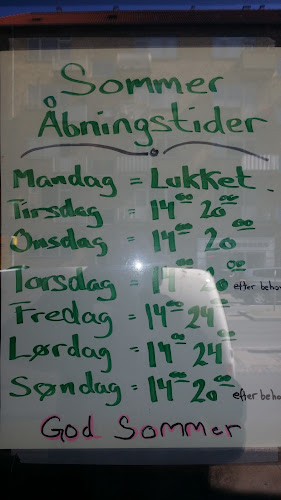 Sommer
Åbningstider
Mandag = Lukket.
Tirsdag = 14⁰⁰ 20⁰⁰
Onsdag = 14⁰⁰ 20⁰⁰
Torsdag = 14⁰⁰ 20⁰⁰ efter beho
Fredag = 14⁰⁰ 24⁰⁰
Lørdag = 14⁰⁰ 24⁰⁰
Søndag = 14⁰⁰ 20⁰⁰ efter beho
God Sommer